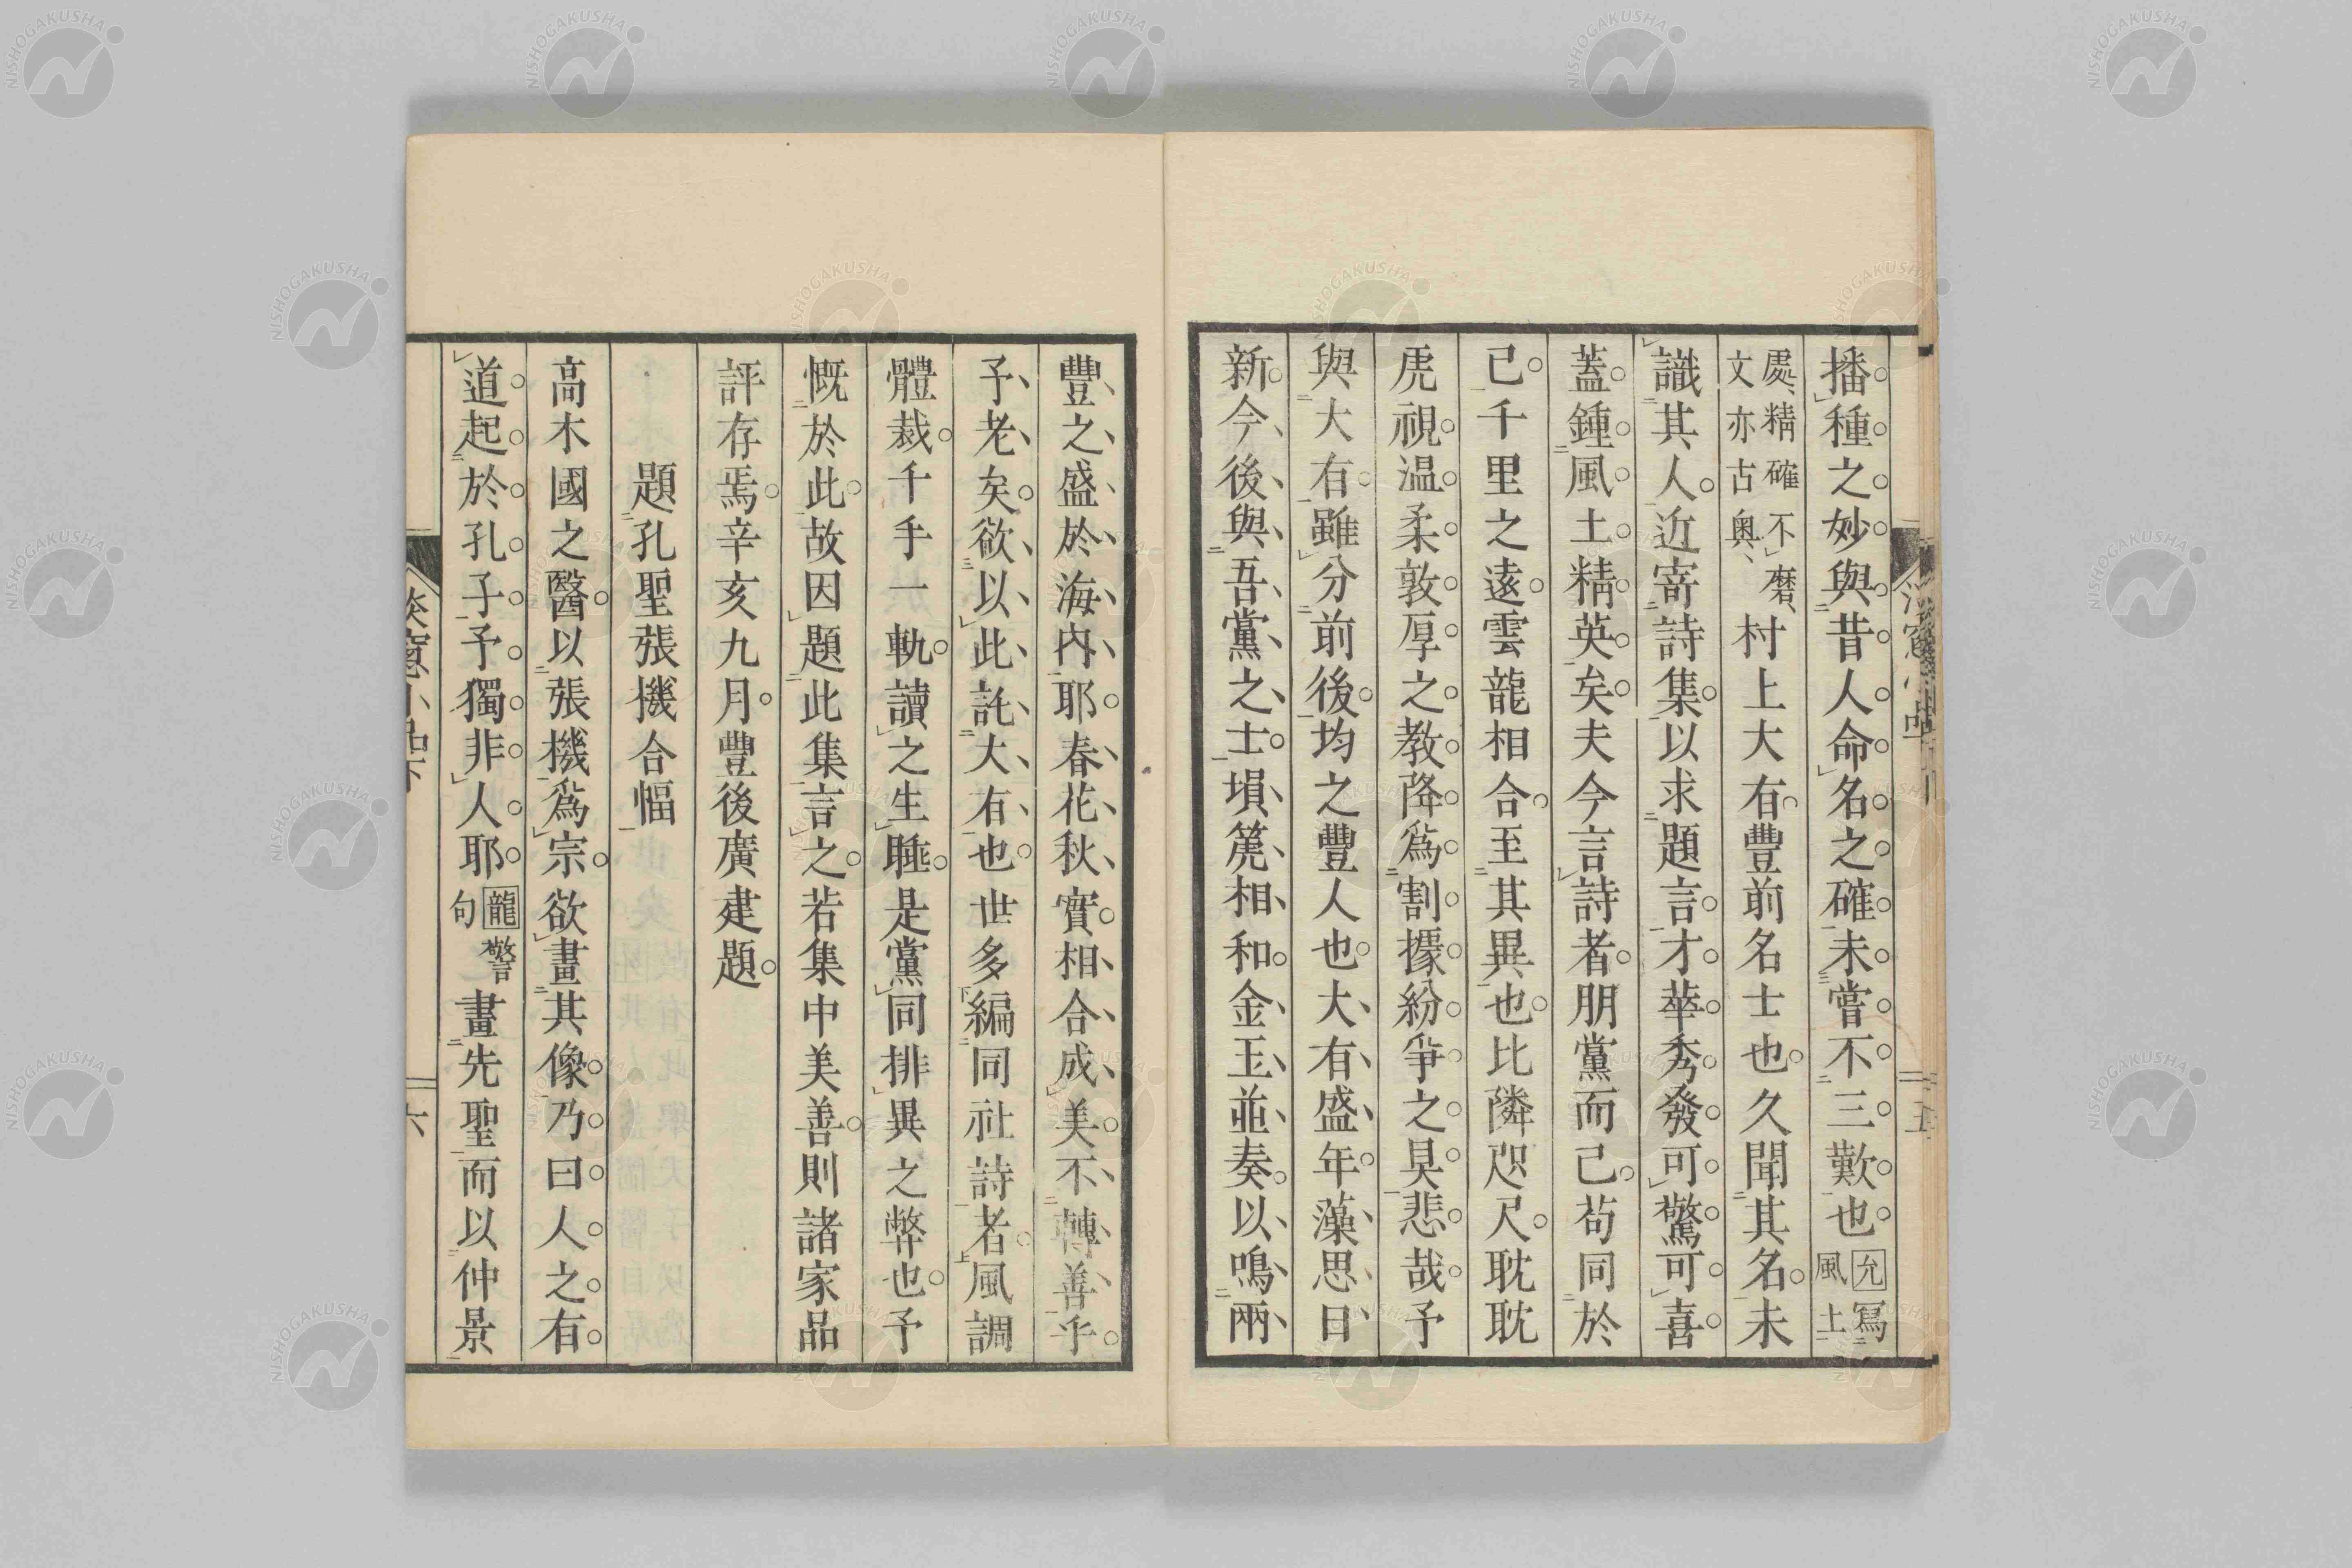 播種之妙與昔人命名之確未嘗不三歎也允寫風土
處精確不磨文亦古奧村上大有豐前名士也久聞其名未
識其人近寄詩集以求題言才華秀發可驚可喜
蓋鍾風土精英矣夫今言詩者朋黨而已苟同於
已千里之遠雲龍相合至其異也比隣咫尺耽耽
虎視温柔敦厚之教降爲割據紛爭之具悲哉予
與大有雖分前後均之豐人也大有盛年藻思日
新今後與吾黨之士塤箎相和金玉並奏以鳴兩
豐之盛於海內耶春花秋實相合成美不轉善乎
予老矣欲以此託大有也世多編同社詩者風調
體裁千手一軌讀之生睡是黨同排異之弊也予
慨於此故因題此集言之若集中美善則諸家品
評存焉辛亥九月豐後廣建題
題孔聖張機合幅
高木國之醫以張機爲宗欲畫其像乃曰人之有
道起於孔子予獨非人耶龍警句畫先聖而以仲景
六
NISHOGAKUSHA